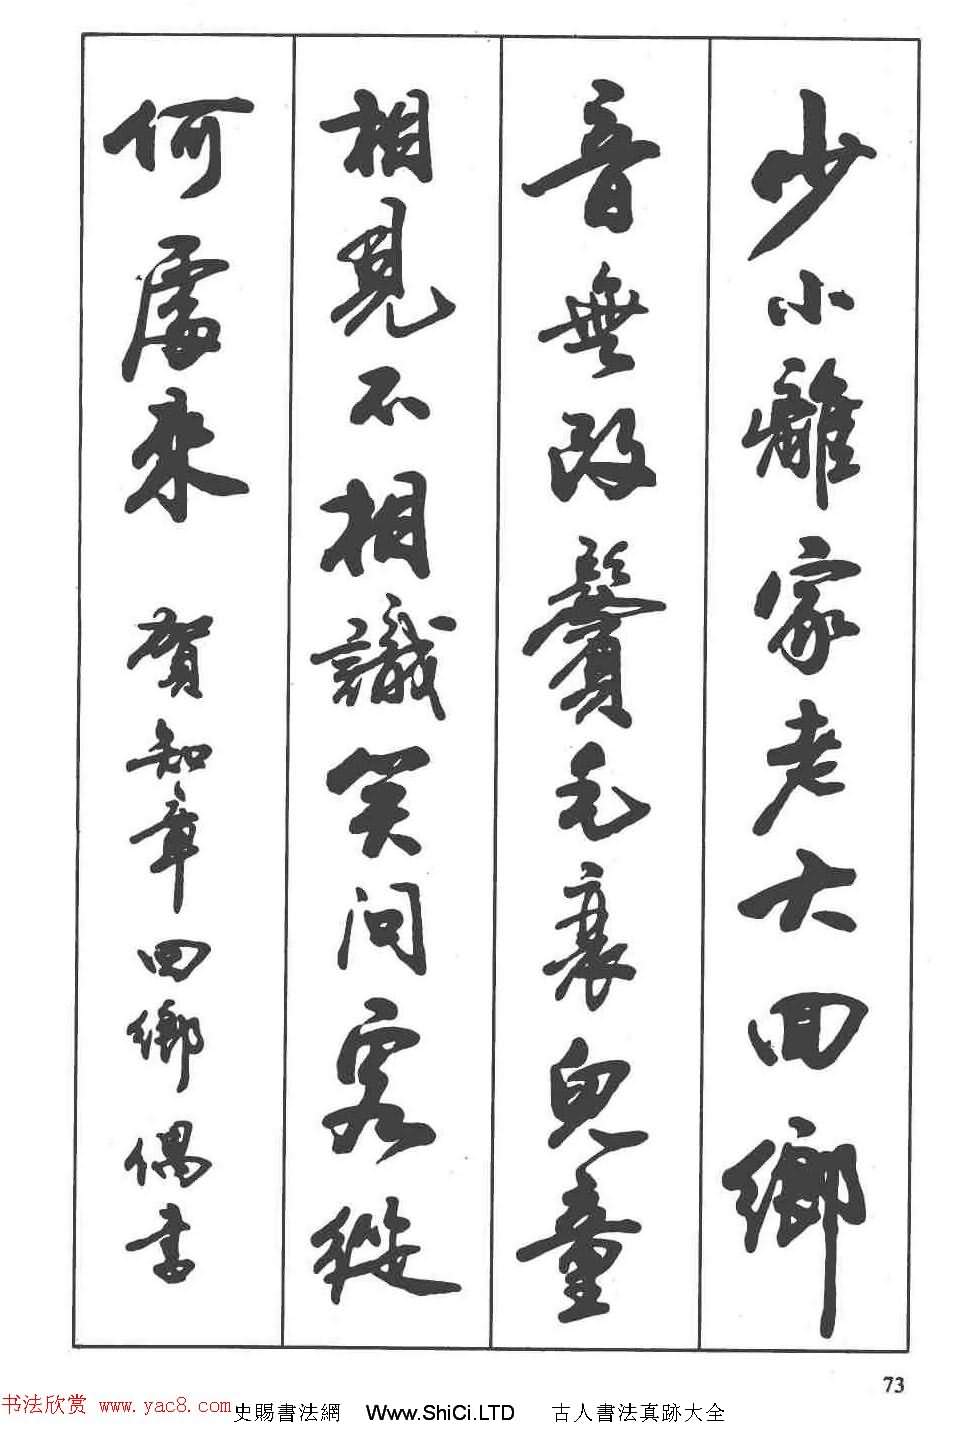 少小離家老大回鄉
音無改鬢毛衰兒童
相見不相識笑問客從
何處來 賀知章回鄉偶書
73
书法欣赏 www.yac8.com
史賜書法網 Www.ShiCi.LTD 古人書法真跡大全